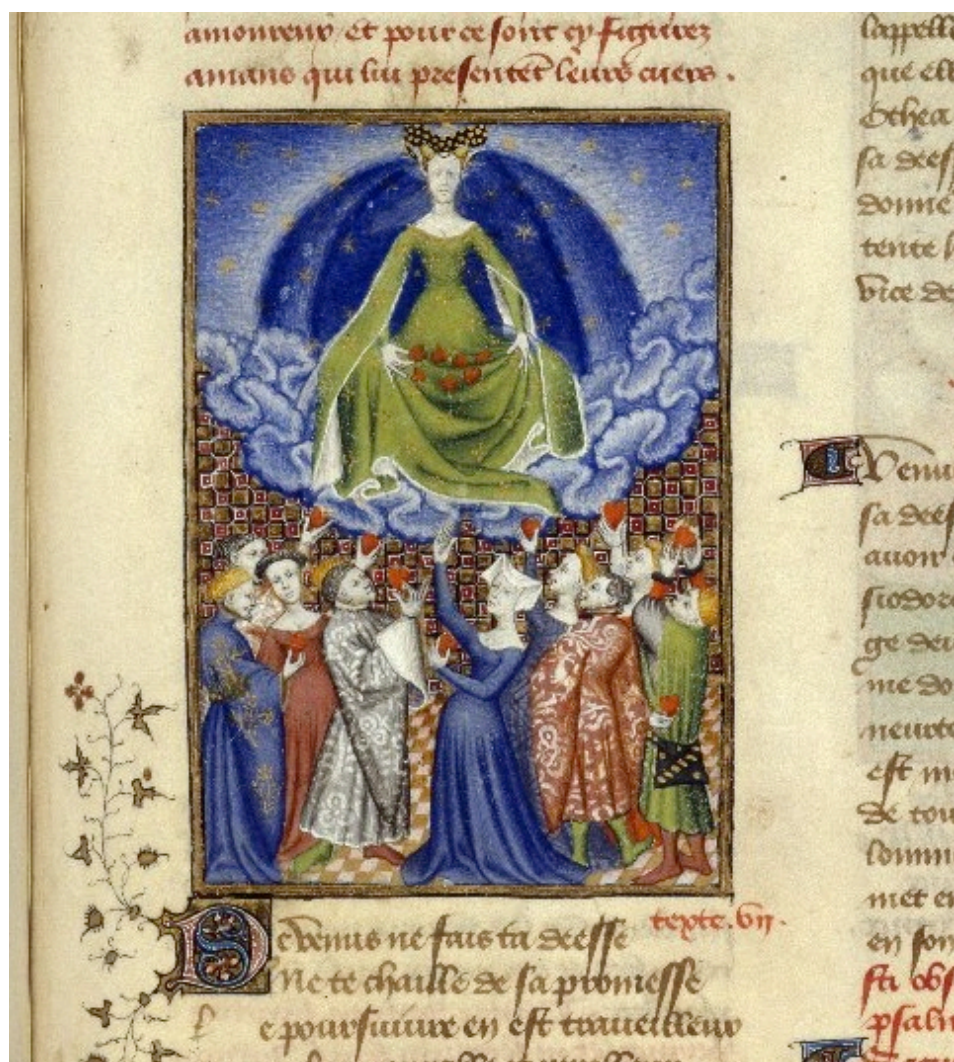 amoureux et pour ce sont cy figurez
amans qui lui presentẽt leurs cuers .
De venus ne fais ta deesse
texte . vii .
Ne te chaille de sa promesse
Le poursuivre en est traveilleux
lappelle
que el
Othea
sa deess
donne
tente l
vice de
Venu
sa dees
avoir
siodor
ge de
me do
est m
de tou
met e
en son
sti obs
psal